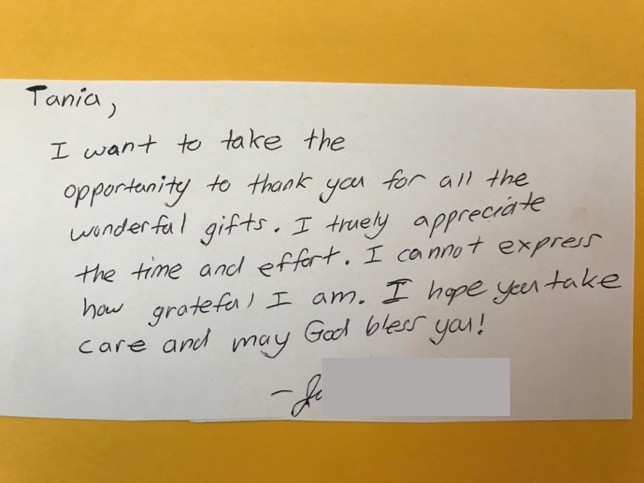 Tania,
I want to take the
opportunity to thank you for all the
wonderful gifts. I truely appreciate
the time and effort. I cannot express
how grateful I am. I hope you take
care and may God bless you!
-